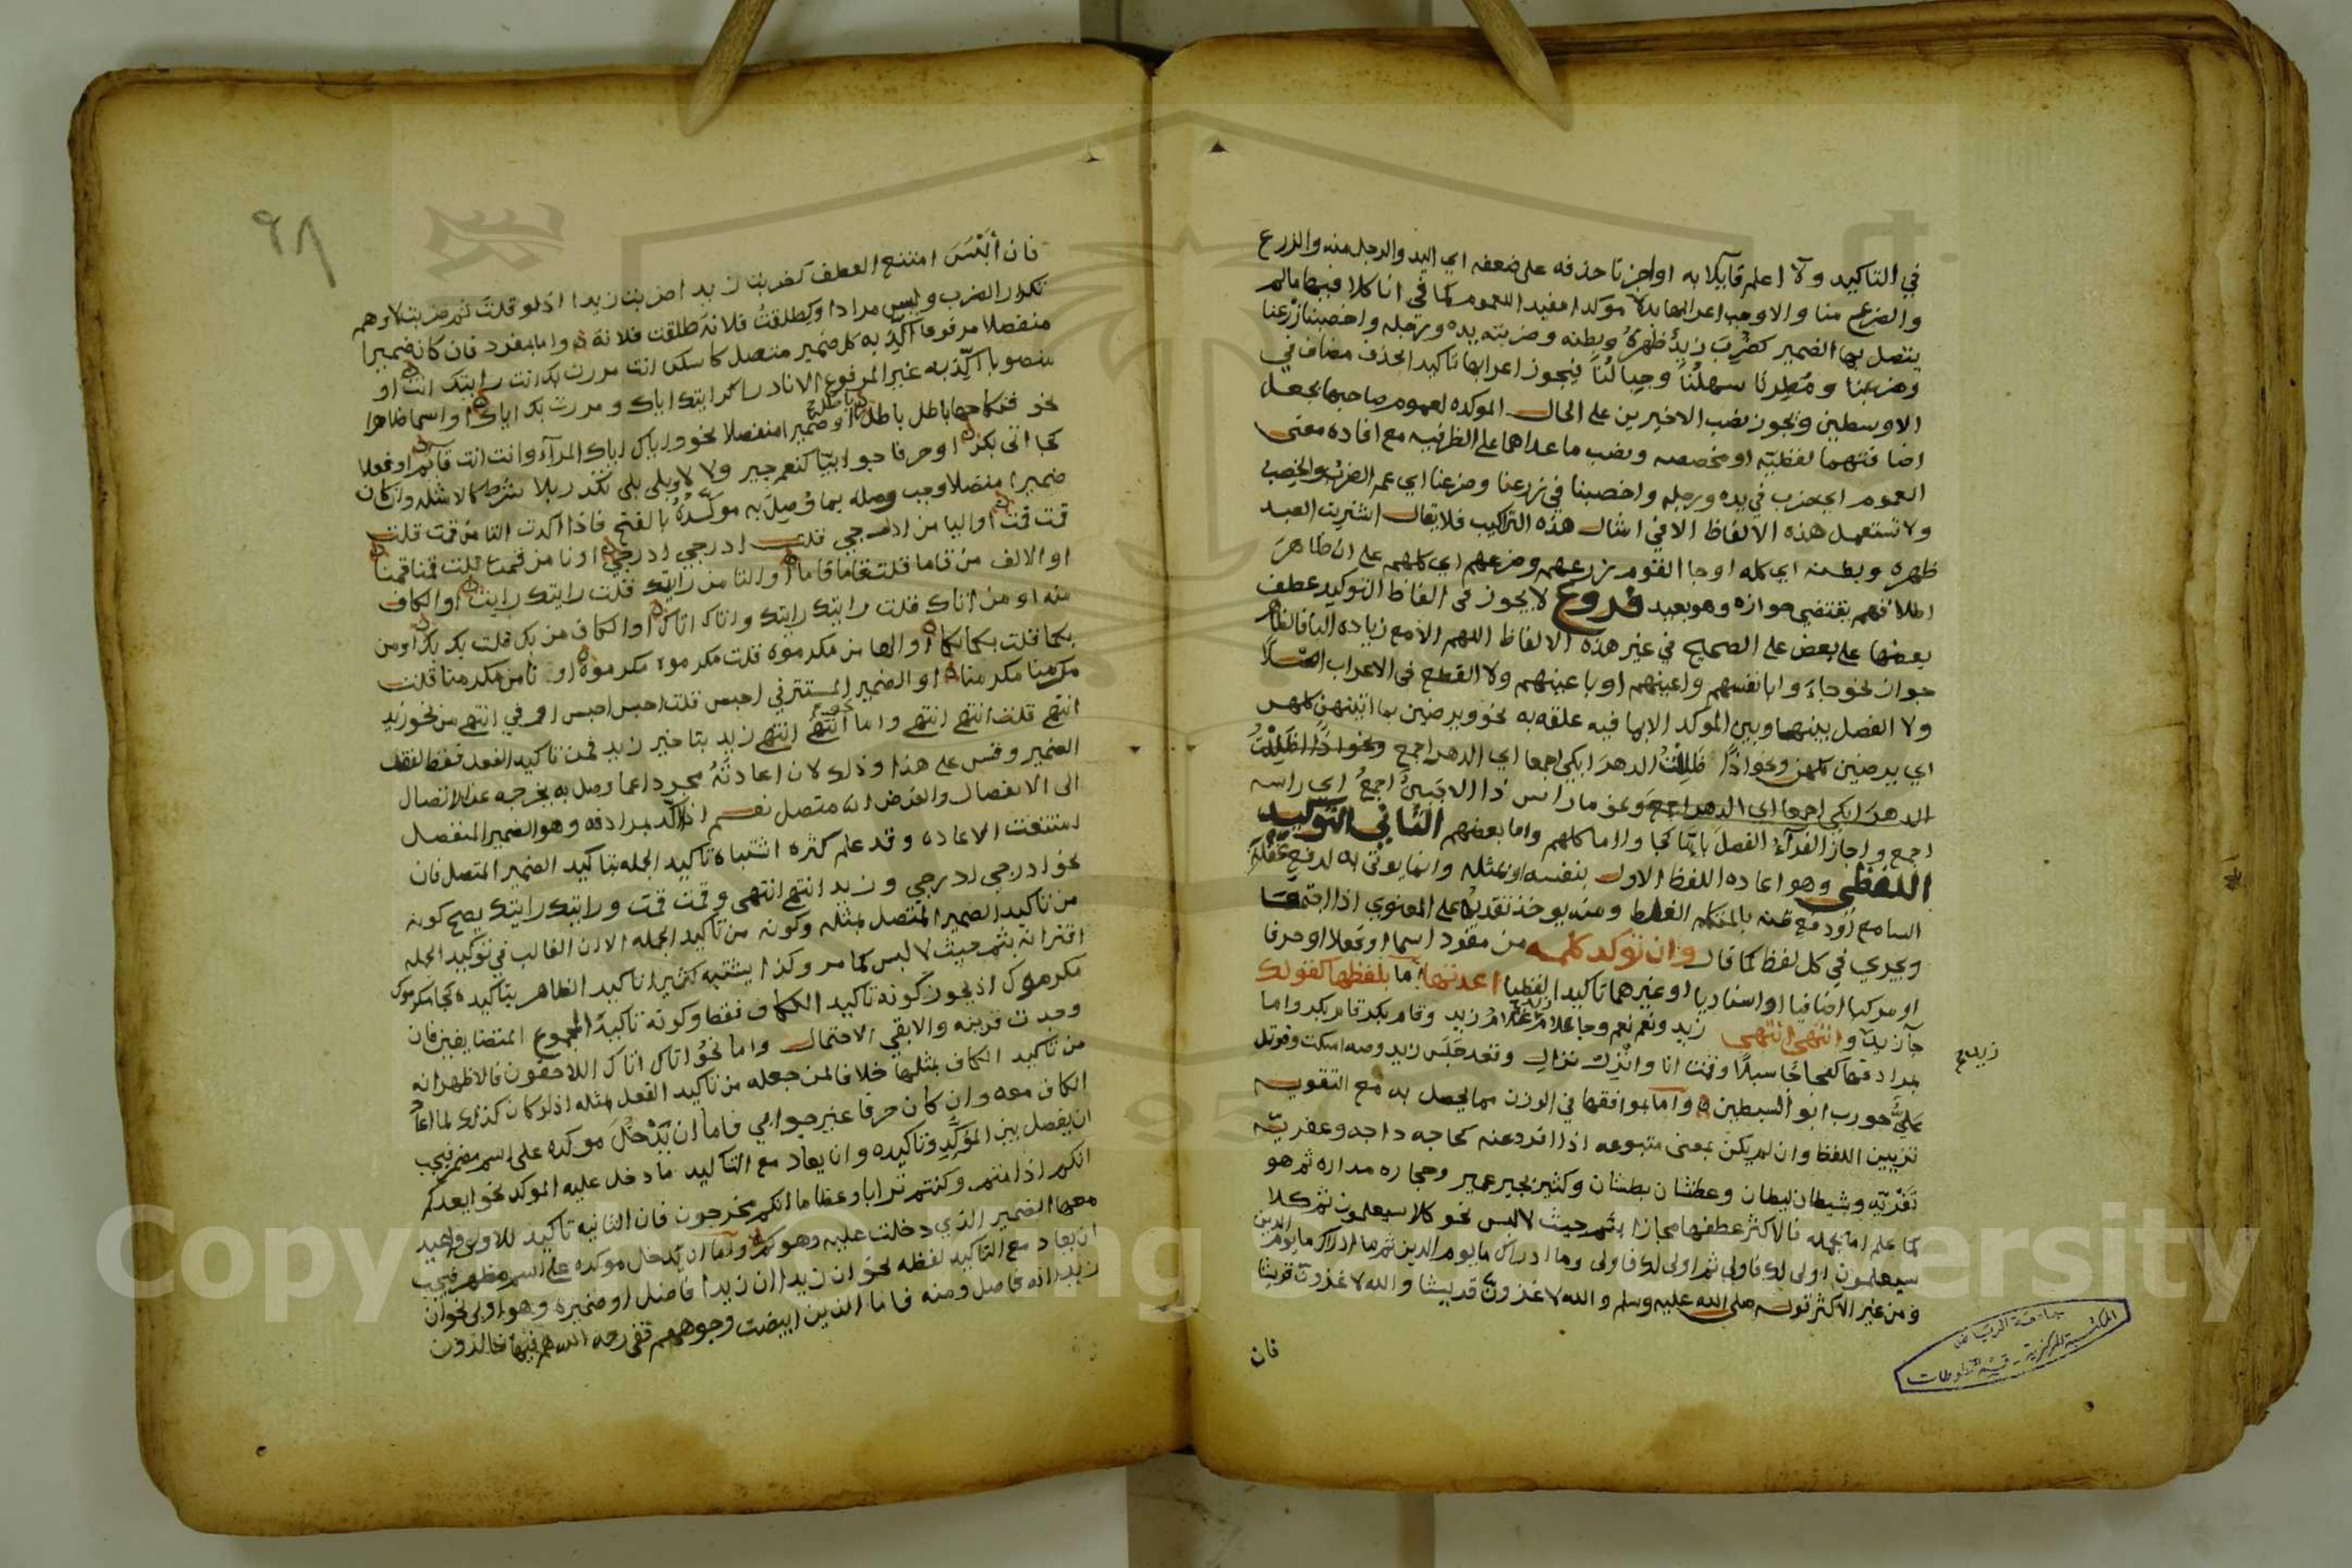 في التاكيد ولا اعلم قائلا به او اجزتا حذفه على ضعفه اي اليد والرجل منه والزرع
والضرع منا والا وجب اعرابها بدلا موكدا مفيدا للعموم كما في انا كلا فيها مالم
يتصل بها الضمير كضرب زيد ظهره وبطنه وضربته يده ورجله واخصبنا زرعنا
وضرعنا ومطرنا سهلنا وجبالنا فيجوز اعرابها تاكيدا لحذف مضاف في
الاوسطين ويجوز نصب الاخيرين على الحال الموكده لعموم صاحبها بجعل
اضافتهما لفظيه او مخصصه ونصب ما عداهما على الظرفيه مع افاده معنى
العموم اي ضرب في يده ورجله واخصبنا في زرعنا وضرعنا اي عم الضرب والخصب
ولا تستعمل هذه الالفاظ الا في امثال هذه التراكيب فلا يقال اشتريت العبد
ظهره وبطنه اي كله او جا القوم زرعهم وضرعهم اي كلهم على ان ظاهر
اطلاقهم يقتضي جوازه وهو بعيد فروع لا يجوز في الفاظ التوكيد عطف
بعضها على بعض على الصحيح في غير هذه الالفاظ اللهم الا مع زياده البا فالظاهر
جوازه نحو جاء وا بانفسهم واعينهم او باعينهم ولا القطع في الاعراب اصلا
ولا الفصل بينها وبين الموكد الا بما فيه علقه به نحو ويرضين بما اتيتهن كلهن
اي يرضين كلهن ونحو اذا ظللت الدهر ابكي اجمعا اي الدهر اجمع ونحو اذا ظللت
الدهر ابكي اجمعا اي الدهر اجمع ونحو ما راس ذا الا جبين اجمع اي راسه
اجمع واجاز الفراء الفصل باما كجا وا اما كلهم واما بعضهم الثاني التوكيد
اللفظي وهو اعاده اللفظ الاول بنفسه او بمثله وانما يوتى به لدفع غفلة
السامع او دفع ظنه بالمتكلم الغلط ومنه يوخذ تقديمه على المعنوي اذا اجتمعا
ويجري في كل لفظ كما قال وان توكد كلمه من مفرد اسما او فعلا او حرفا
او مركبا اضافيا او اسناديا او غيرهما تاكيدا لفظيا اعدتها اما بلفظها كقولك
جآ زيد وانتهى انتهى زيد ونعم نعم وجا غلام غلام زيد وقام بكر قام بكر واما
زيد صح
بمرادفها كفجاجا سبلا وقمت انا وانزل نزال وقعد جلس زيد وصه اسكت وقوتل
علي حورب ابو السبطين واما بموافقها في الوزن مما يحصل به مع التقويه
تزيين اللفظ وان لم يكن بمعنى متبوعه اذا افرد عنه كحاجه داجه وعفريته
نفريته وشيطان ليطان وعطشان بطشان وكثير بجير عمير وحجاره مداره ثم هو
كما علم اما بجمله فالاكثر عطفها مجازا بثم حيث لا لبس نحو كلا سيعلمون ثم كلا
سيعلمون اولى لك فاولى ثم اولى لك فاولى وما ادراك ما يوم الدين ثم ما ادراك ما يوم الدين
ومن غير الاكثر قوله صلى الله عليه وسلم والله لاغزون قريشا والله لاغزون قريشا
فان
جامعة الرياض
المكتبة المركزية - قسم المخطوطات
٩٨
فان ألبس امتنع العطف كضربت زيدا ضربت زيدا اذ لو قلت ثم ضربت لاوهم
تكرار الضرب وليس مرادا وكطلقت فلانة طلقت فلانة واما بمفرد فان كان ضميرا
منفصلا مرفوعا اكد به كل ضمير متصل كاسكن انت مررت بك انت رايتك انت او
منصوبا اكد به غير المرفوع الا نادرا كرايتك اياك ومررت بك اياك او اسما ظاهرا
نحو فنكاحها باطل باطل باطل او ضميرا منفصلا نحو واياك اياك المرآء وانت انت قائم او فعلا
كجا اتى بكر او حرفا جوابيا كنعم جير ولا لا وبلى بلى
ضميرا متصلا وجب وصله بما وصل به موكده بالفتح فاذا اكدت التا من قمت قلت
قمت قمت او اليا من ادرجي قلت ادرجي ادرجي او نا من قمنا قلت قمنا قمنا
او الالف من قاما قلت قاما قاما او التا من رايتك قلت رايتك رايتك او الكاف
منه او من اتاك قلت رايتك رايتك واتاك اتاك او الكاف من بك قلت بك بك او من
بكما قلت بكما بكما او الها من مكرموه قلت مكرموه مكرموه او نا من مكرمنا قلت
مكرمنا مكرمنا او الضمير المستتر في احبس قلت احبس احبس او في انتهى من نحو زيد
انتهى قلت انتهى انتهى واما نحو انتهى انتهى زيد بتاخير زيد فمن تاكيد الفعل فقط لفقد
الضمير وقس على هذا وذلك لان اعادته مجردا عما وصل به يخرجه عن الاتصال
الى الانفصال والغرض انه متصل نعم اذا اكد بمرادفه وهو الضمير المنفصل
امتنعت الاعاده وقد علم كثره اشتباه تاكيد الجمله بتاكيد الضمير المتصل فان
نحو ادرجي ادرجي وزيد انتهى انتهى وقمت قمت ورايتك رايتك يصح كونه
من تاكيد الضمير المتصل بمثله وكونه من تاكيد الجمله الا ان الغالب في توكيد الجمله
اقترانه بثم حيث لا لبس كما مر وكذا يشتبه كثيرا تاكيد الظاهر بتاكيده كجا مكرموك
مكرموك اذ يجوز كونه تاكيد الكاف فقط وكونه تاكيد المجموع المتضايفين فان
وجدت قرينه والا بقي الاحتمال واما نحو اتاك اتاك اللاحقون فالاظهر انه
من تاكيد الكاف بمثلها خلافا لمن جعله من تاكيد الفعل بمثله اذ لو كان كذلك لما اعاد
الكاف معه وان كان حرفا غير جوابي فاما ان يدخل موكده على اسم مضمر فيجب
ان يفصل بين الموكد وتاكيده وان يعاد مع التاكيد ما دخل عليه الموكد نحو ايعدكم
انكم اذا متم وكنتم ترابا وعظاما انكم مخرجون فان الثانيه تاكيد للاولى واعيد
معها الضمير الذي دخلت عليه وهو كم واما ان يدخل موكده على اسم مظهر فيجب
ان يعاد مع التاكيد لفظه نحو ان زيدا ان زيدا فاضل او ضميره وهو اولى نحو ان
زيدا انه فاضل ومنه فاما الذين ابيضت وجوههم ففي رحمه الله هم فيها خالدون